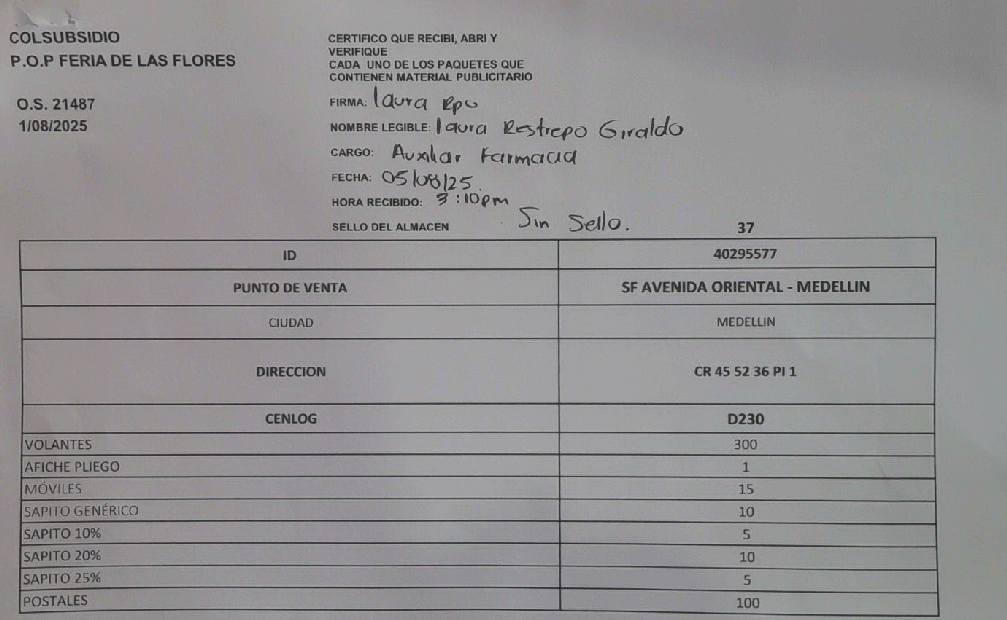 COLSUBSIDIO
P.O.P FERIA DE LAS FLORES
O.S. 21487
1/08/2025
CERTIFICO QUE RECIBI, ABRI Y
VERIFIQUE
CADA UNO DE LOS PAQUETES QUE
CONTIENEN MATERIAL PUBLICITARIO
FIRMA: laura Rpo
NOMBRE LEGIBLE: laura Restrepo Giraldo
CARGO: Auxiliar Farmacia
FECHA: 05/08/25
HORA RECIBIDO: 3:10pm
SELLO DEL ALMACEN Sin Sello.
37
ID 40295577
PUNTO DE VENTA SF AVENIDA ORIENTAL - MEDELLIN
CIUDAD MEDELLIN
DIRECCION CR 45 52 36 PI 1
CENLOG D230
VOLANTES 300
AFICHE PLIEGO 1
MÓVILES 15
SAPITO GENÉRICO 10
SAPITO 10% 5
SAPITO 20% 10
SAPITO 25% 5
POSTALES 100